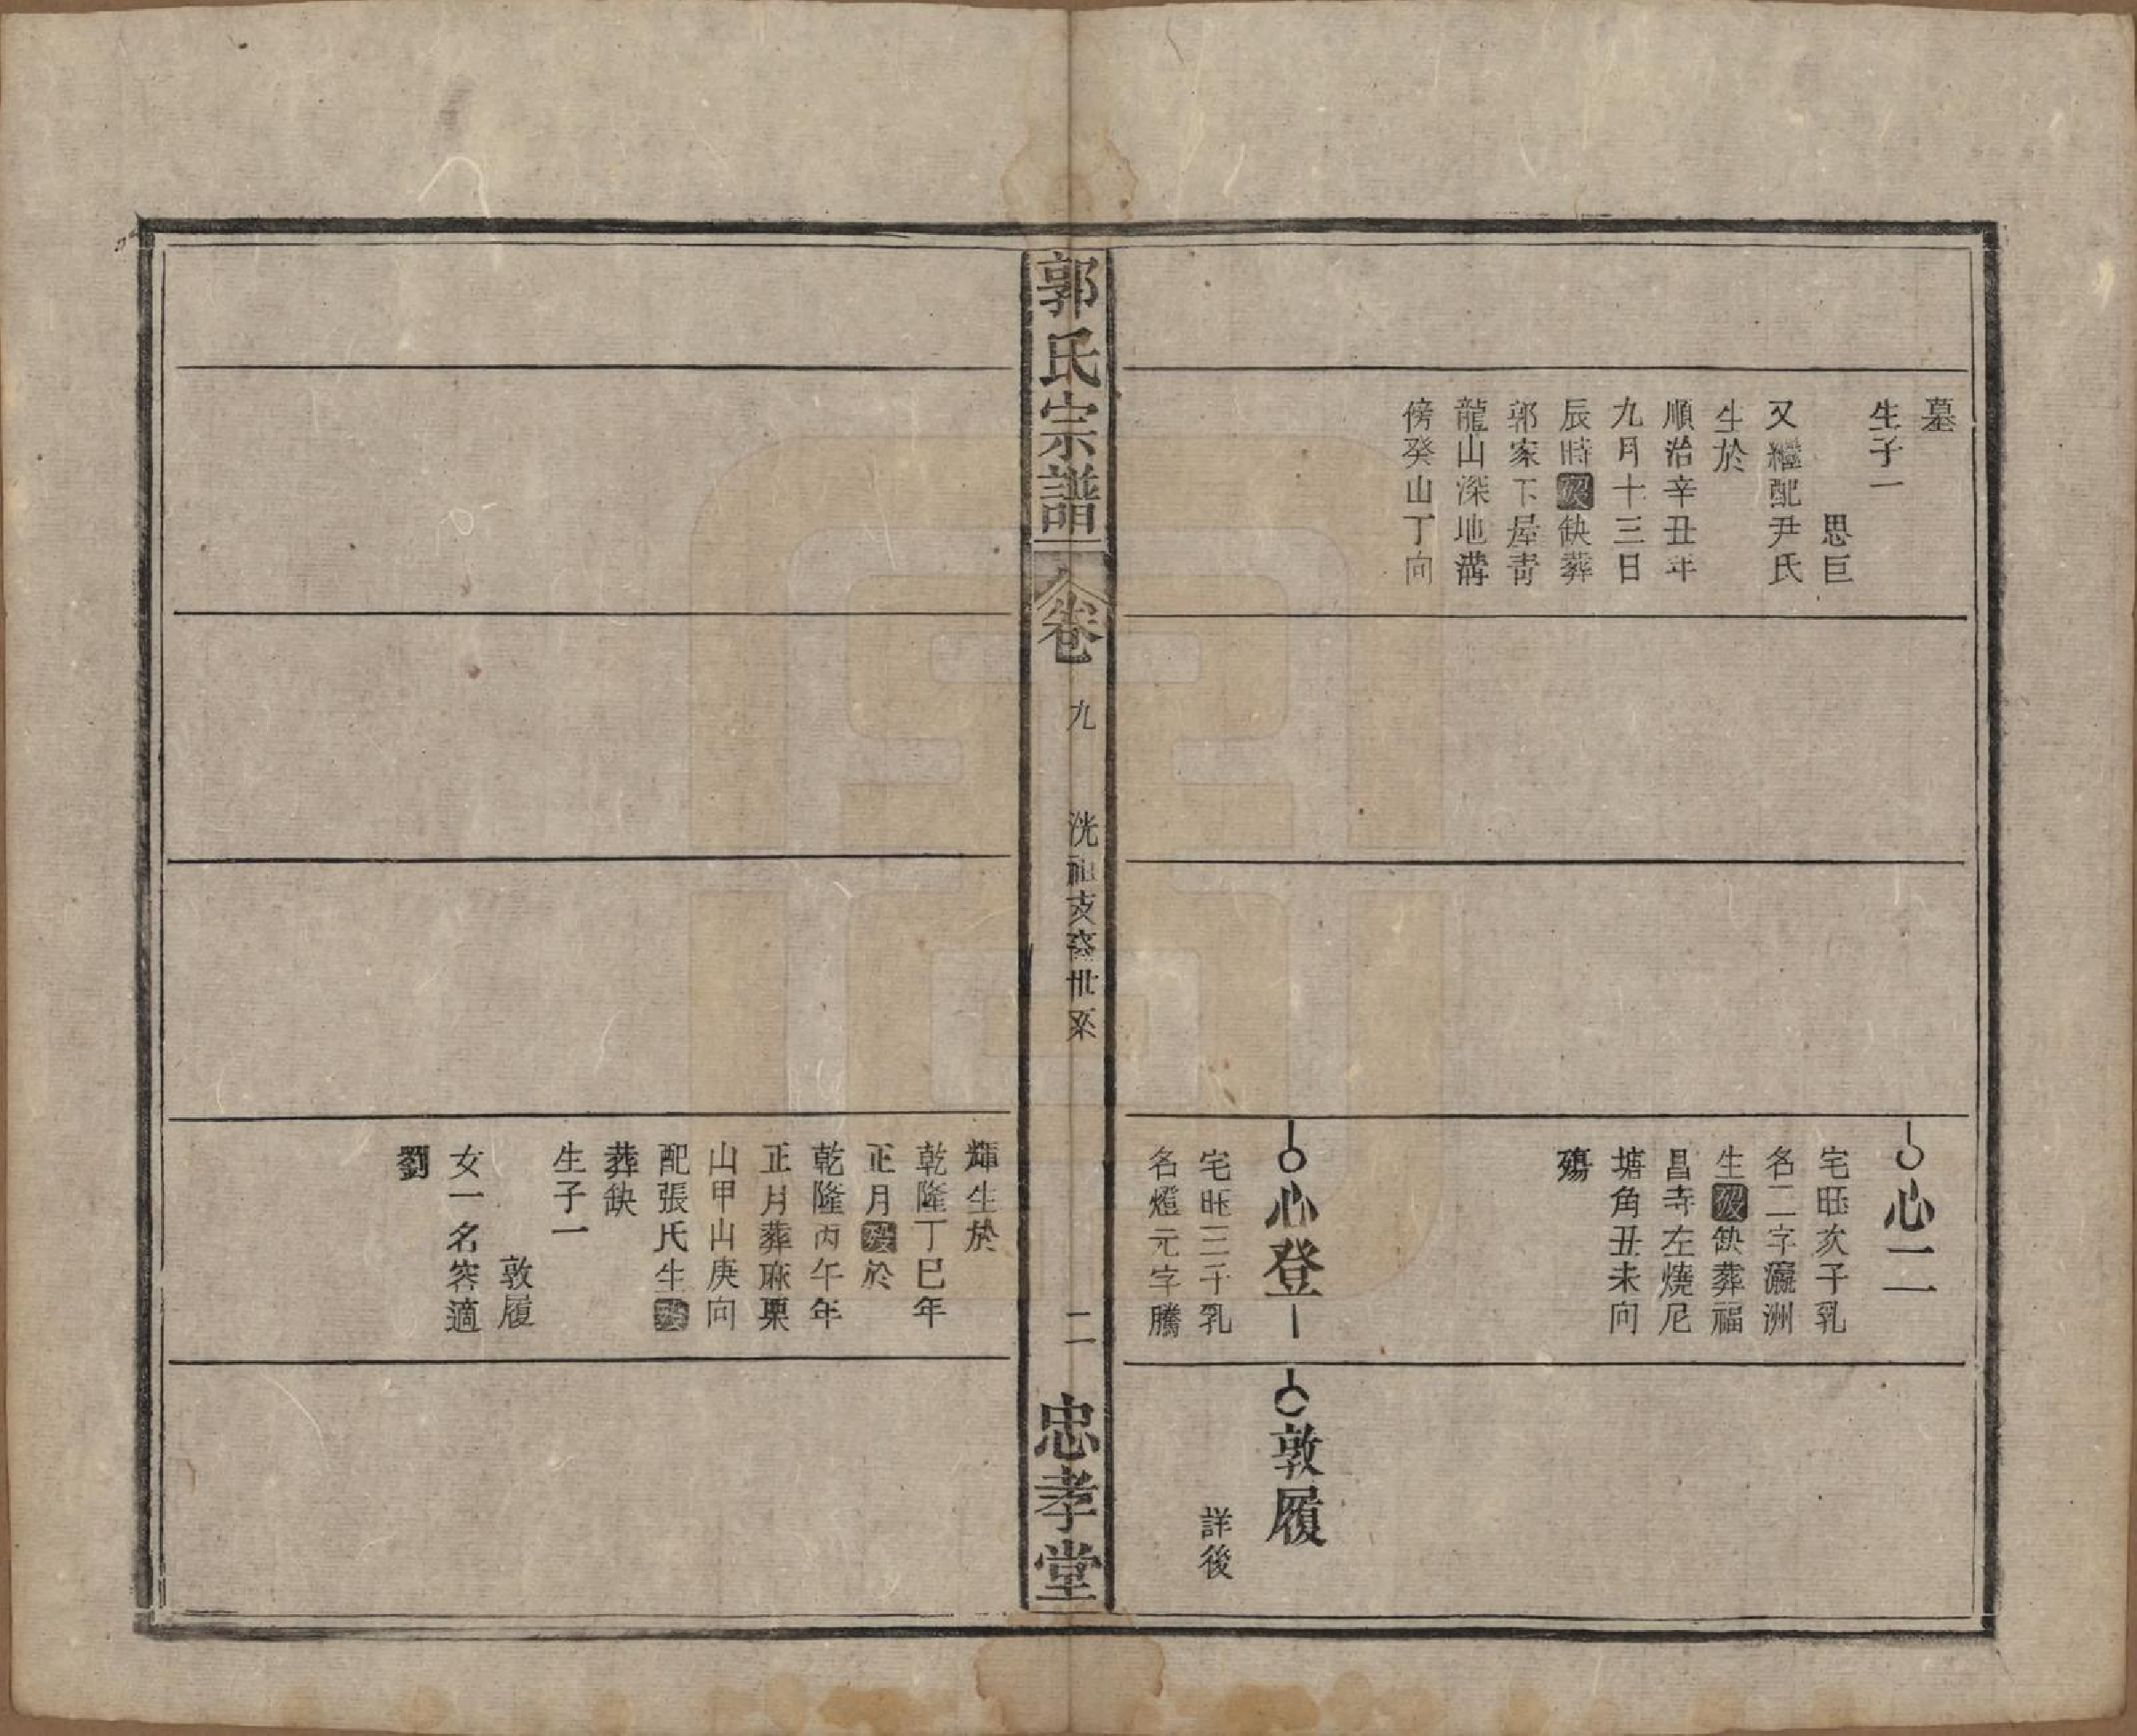 墓
生子一
思巨
又繼配尹氏
生於
順治辛丑年
九月十三日
辰時歿缺葬
郭家下屋靑
龍山深地溝
傍癸山丁向
心二
宅旺次子乳
名二字瀛洲
生歿缺葬福
昌寺左燒尼
塘角丑未向
殤
心登
宅旺三子乳
名燈元字騰
敦履
詳後
郭氏宗譜
卷
九
洸祖支裔世系
二
忠孝堂
輝生於
乾隆丁巳年
正月歿於
乾隆丙午年
正月葬麻栗
山甲山庚向
配張氏生歿
葬缺
生子一
敦履
女一名容適
劉